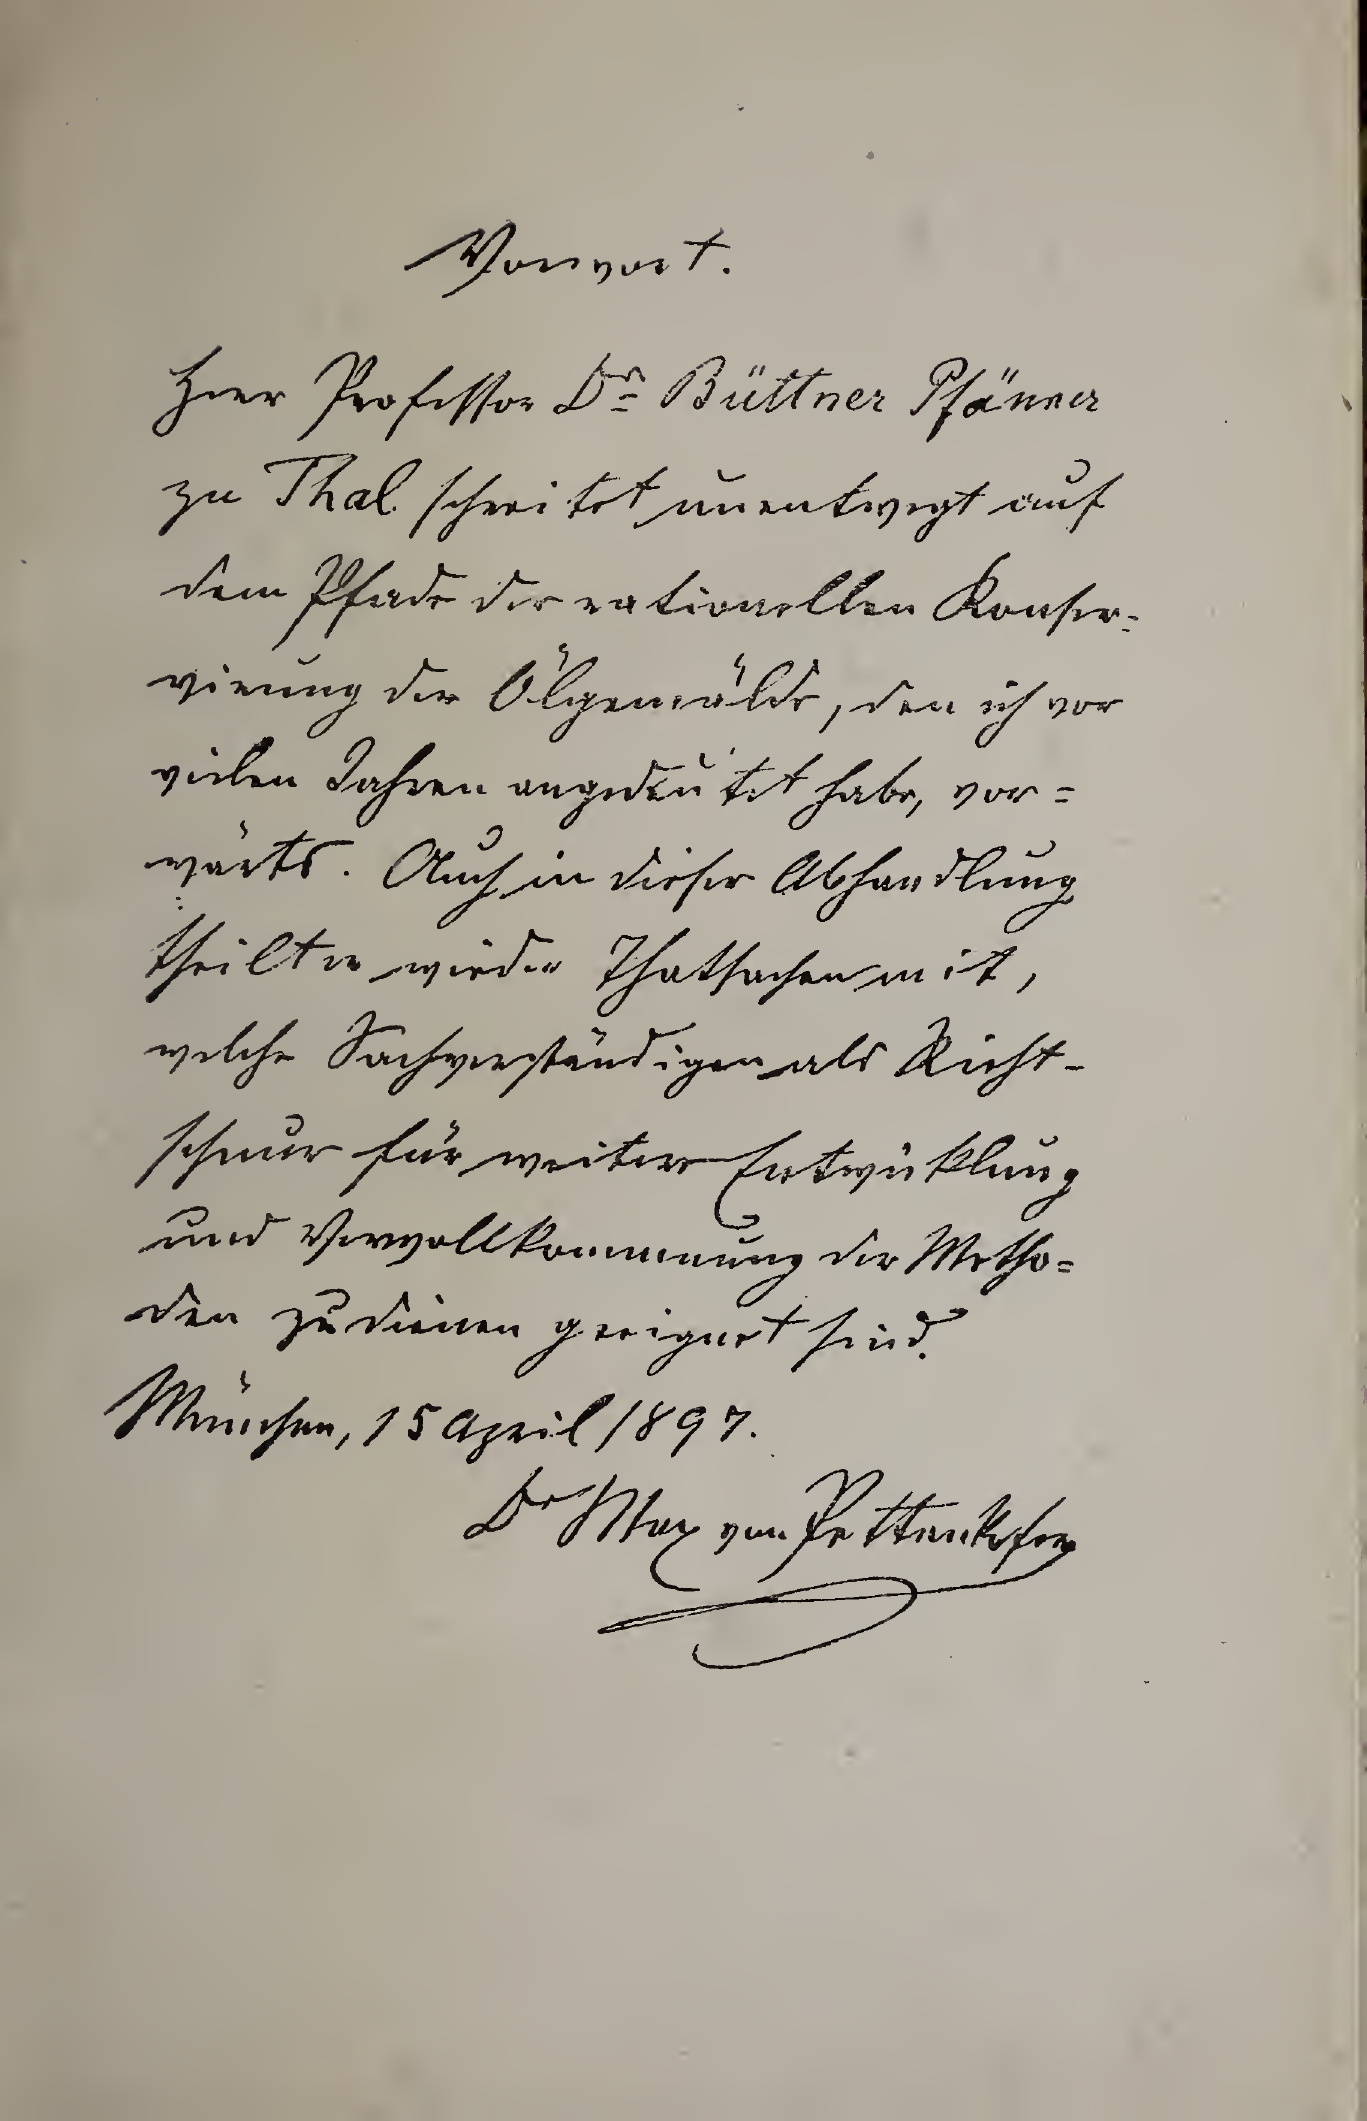 Vorwort.
Herr Professor Dr. Büttner Pfänner
zu Thal schreitet unentwegt auf
dem Pfade der rationellen Konser=
vierung der Ölgemälde, den ich vor
vielen Jahren angedeutet habe, vor=
wärts. Auch in dieser Abhandlung
theilt er wieder Thatsachen mit,
welche Sachverständigen als Richt-
schnur für weitere Entwicklung
und Vervollkommnung der Metho=
den zu dienen geeignet sind.
München, 15 April 1897.
Dr Max von Pettenkofer